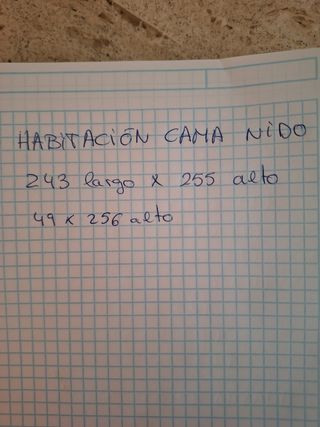 HABITACIÓN CAMA NIDO
243 largo x 255 alto
49 x 256 alto